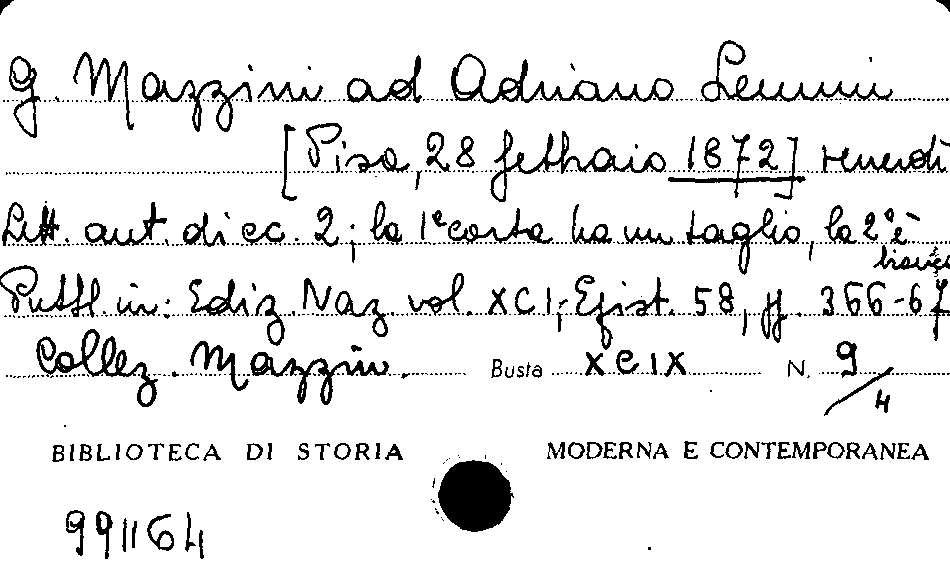 G. Mazzini ad Adriano Lemmi
[Pisa, 28 febbraio 1872] venerdì
Lett. aut. di cc. 2; la 1ª carta ha un taglio, la 2ª è bianca
Pubbl. in: Ediz. Naz. vol. XCI; Epist. 58, pp. 366-67
Collez. Mazzini. Busta XCIX N. 9/4
BIBLIOTECA DI STORIA MODERNA E CONTEMPORANEA
99/164